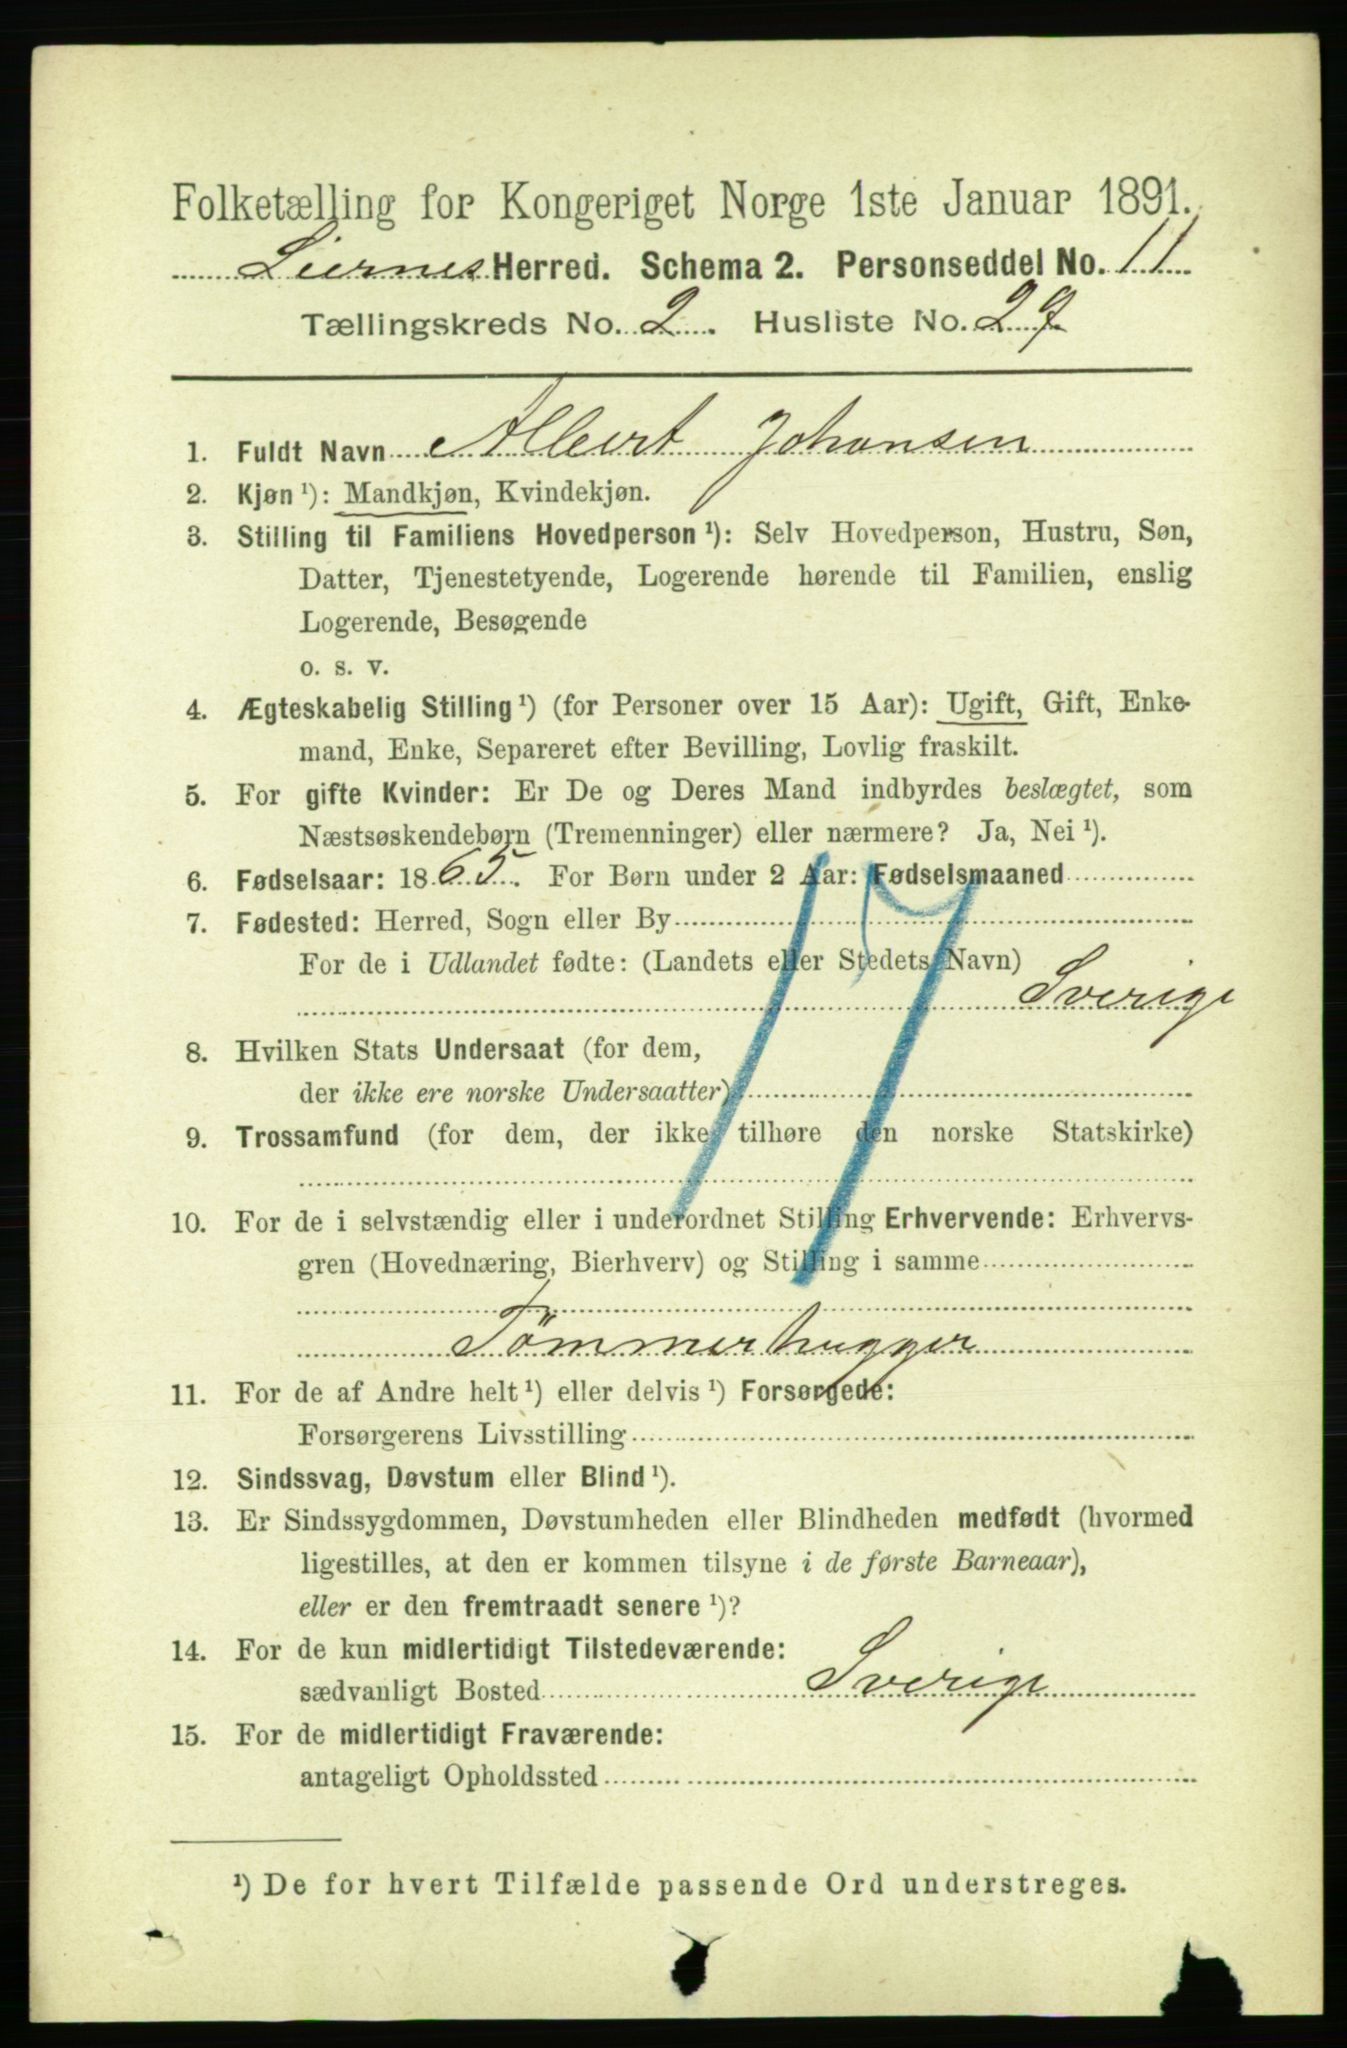 Folketælling for Kongeriget Norge 1ste Januar 1891.
Liernes Herred. Schema 2. Personseddel No. 11
Tællingskreds No. 2. Husliste No. 27
1. Fuldt Navn Albert Johansen
2. Kjøn ¹): Mandkjøn, Kvindekjøn.
3. Stilling til Familiens Hovedperson ¹): Selv Hovedperson, Hustru, Søn,
Datter, Tjenestetyende, Logerende hørende til Familien, enslig
Logerende, Besøgende
o. s. v.
4. Ægteskabelig Stilling ¹) (for Personer over 15 Aar): Ugift, Gift, Enke-
mand, Enke, Separeret efter Bevilling, Lovlig fraskilt.
5. For gifte Kvinder: Er De og Deres Mand indbyrdes beslægtet, som
Næstsøskendebørn (Tremenninger) eller nærmere? Ja, Nei ¹).
6. Fødselsaar: 1865. For Børn under 2 Aar: Fødselsmaaned
7. Fødested: Herred, Sogn eller By
For de i Udlandet fødte: (Landets eller Stedets Navn)
Sverige
8. Hvilken Stats Undersaat (for dem,
der ikke ere norske Undersaatter)
9. Trossamfund (for dem, der ikke tilhøre den norske Statskirke)
17
10. For de i selvstændig eller i underordnet Stilling Erhvervende: Erhvervs-
gren (Hovednæring, Bierhverv) og Stilling i samme
Tömmerhugger
11. For de af Andre helt ¹) eller delvis ¹) Forsørgede:
Forsørgerens Livsstilling
12. Sindssvag, Døvstum eller Blind ¹).
13. Er Sindssygdommen, Døvstumheden eller Blindheden medfødt (hvormed
ligestilles, at den er kommen tilsyne i de første Barneaar),
eller er den fremtraadt senere ¹)?
14. For de kun midlertidigt Tilstedeværende:
sædvanligt Bosted Sverige
15. For de midlertidigt Fraværende:
antageligt Opholdssted
¹) De for hvert Tilfælde passende Ord understreges.